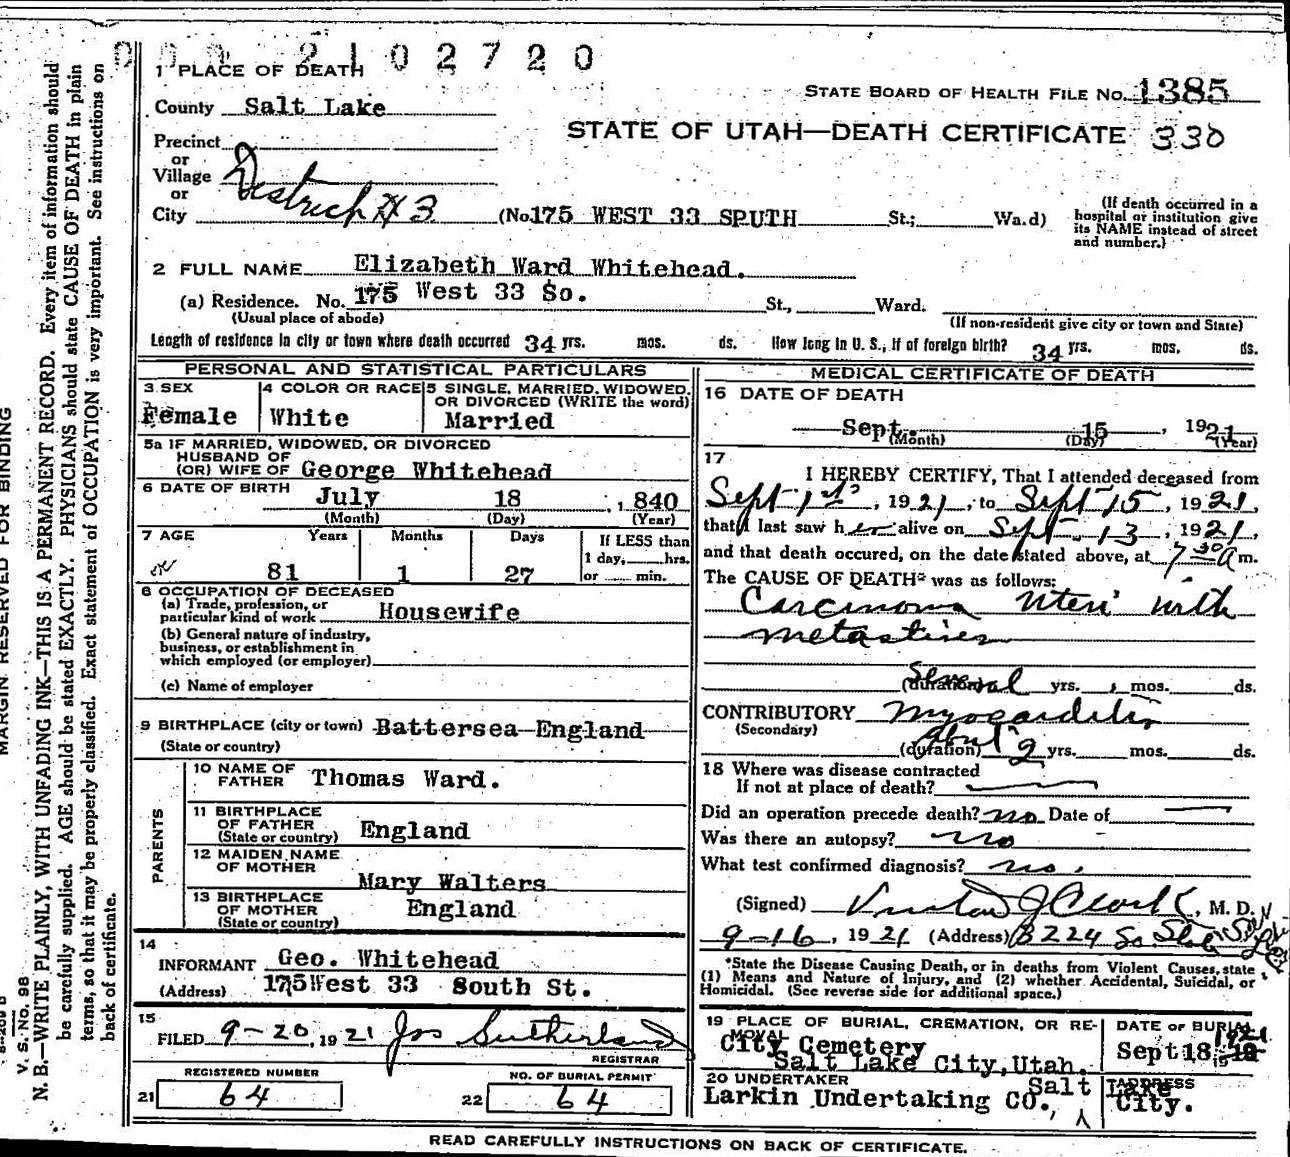 000 2102720
1 PLACE OF DEATH
STATE BOARD OF HEALTH FILE NO. 1385
County Salt Lake
STATE OF UTAH—DEATH CERTIFICATE 330
Precinct
or
Village
or
City District #3 (No. 175 WEST 33 SPUTH St.; Wa.d)
(If death occurred in a
hospital or institution give
its NAME instead of street
and number.)
2 FULL NAME Elizabeth Ward Whitehead.
(a) Residence. No. 175 West 33 So. St., Ward.
(Usual place of abode) (If non-resident give city or town and State)
Length of residence in city or town where death occurred 34 yrs. mos. ds. How long in U. S., if of foreign birth? 34 yrs. mos. ds.
PERSONAL AND STATISTICAL PARTICULARS
3 SEX
Female
4 COLOR OR RACE
White
5 SINGLE, MARRIED, WIDOWED,
OR DIVORCED (WRITE the word)
Married
5a IF MARRIED, WIDOWED, OR DIVORCED
HUSBAND OF
(OR) WIFE OF George Whitehead
6 DATE OF BIRTH July 18 , 1840
(Month) (Day) (Year)
7 AGE Years Months Days If LESS than
1 day, hrs.
81 1 27 or min.
8 OCCUPATION OF DECEASED
(a) Trade, profession, or
particular kind of work Housewife
(b) General nature of industry,
business, or establishment in
which employed (or employer)
(c) Name of employer
9 BIRTHPLACE (city or town) Battersea England
(State or country)
PARENTS
10 NAME OF
FATHER Thomas Ward.
11 BIRTHPLACE
OF FATHER
(State or country) England
12 MAIDEN NAME
OF MOTHER
Mary Walters
13 BIRTHPLACE
OF MOTHER England
(State or country)
14
INFORMANT Geo. Whitehead
(Address) 175 West 33 South St.
15
FILED 9-20, 1921 Jos Sutherland
REGISTRAR
REGISTERED NUMBER
21 64
NO. OF BURIAL PERMIT
22 64
MEDICAL CERTIFICATE OF DEATH
16 DATE OF DEATH
Sept. 15 , 1921
(Month) (Day) (Year)
17
I HEREBY CERTIFY, That I attended deceased from
Sept 1st, 1921, to Sept 15, 1921,
that I last saw her alive on Sept. 13, 1921,
and that death occured, on the date stated above, at 7 30 A m.
The CAUSE OF DEATH* was as follows:
Carcinoma Uteri with
metastises
(duration) Several yrs. mos. ds.
CONTRIBUTORY Myocarditis
(Secondary)
(duration) about 2 yrs. mos. ds.
18 Where was disease contracted
If not at place of death?
Did an operation precede death? no Date of
Was there an autopsy? no
What test confirmed diagnosis? no.
(Signed) J Clark, M. D.
9-16, 1921 (Address) 3224 So State
*State the Disease Causing Death, or in deaths from Violent Causes, state
(1) Means and Nature of Injury, and (2) whether Accidental, Suicidal, or
Homicidal. (See reverse side for additional space.)
19 PLACE OF BURIAL, CREMATION, OR RE-
MOVAL
City Cemetery
Salt Lake City, Utah.
DATE OF BURIAL
Sept 18 1921
20 UNDERTAKER
Larkin Undertaking CO.,
ADDRESS
Salt Lake
City.
READ CAREFULLY INSTRUCTIONS ON BACK OF CERTIFICATE.
MARGIN RESERVED FOR BINDING
V. S. No. 98
N. B.—WRITE PLAINLY, WITH UNFADING INK—THIS IS A PERMANENT RECORD. Every item of information should
be carefully supplied. AGE should be stated EXACTLY. PHYSICIANS should state CAUSE OF DEATH in plain
terms, so that it may be properly classified. Exact statement of OCCUPATION is very important. See instructions on
back of certificate.